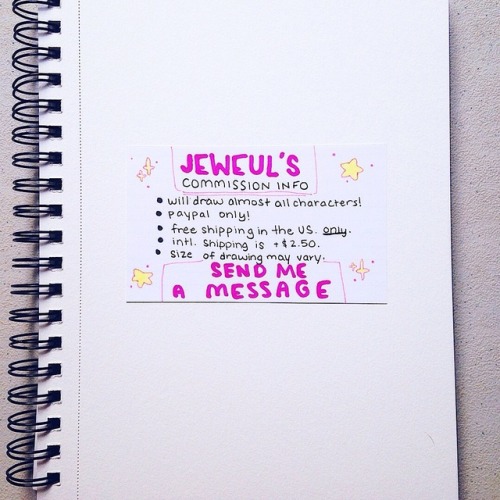 JEWEUL'S
COMMISSION INFO
• will draw almost all characters!
• paypal only!
• free shipping in the US. only.
• intl. shipping is +$2.50.
• size of drawing may vary.
SEND ME
A MESSAGE